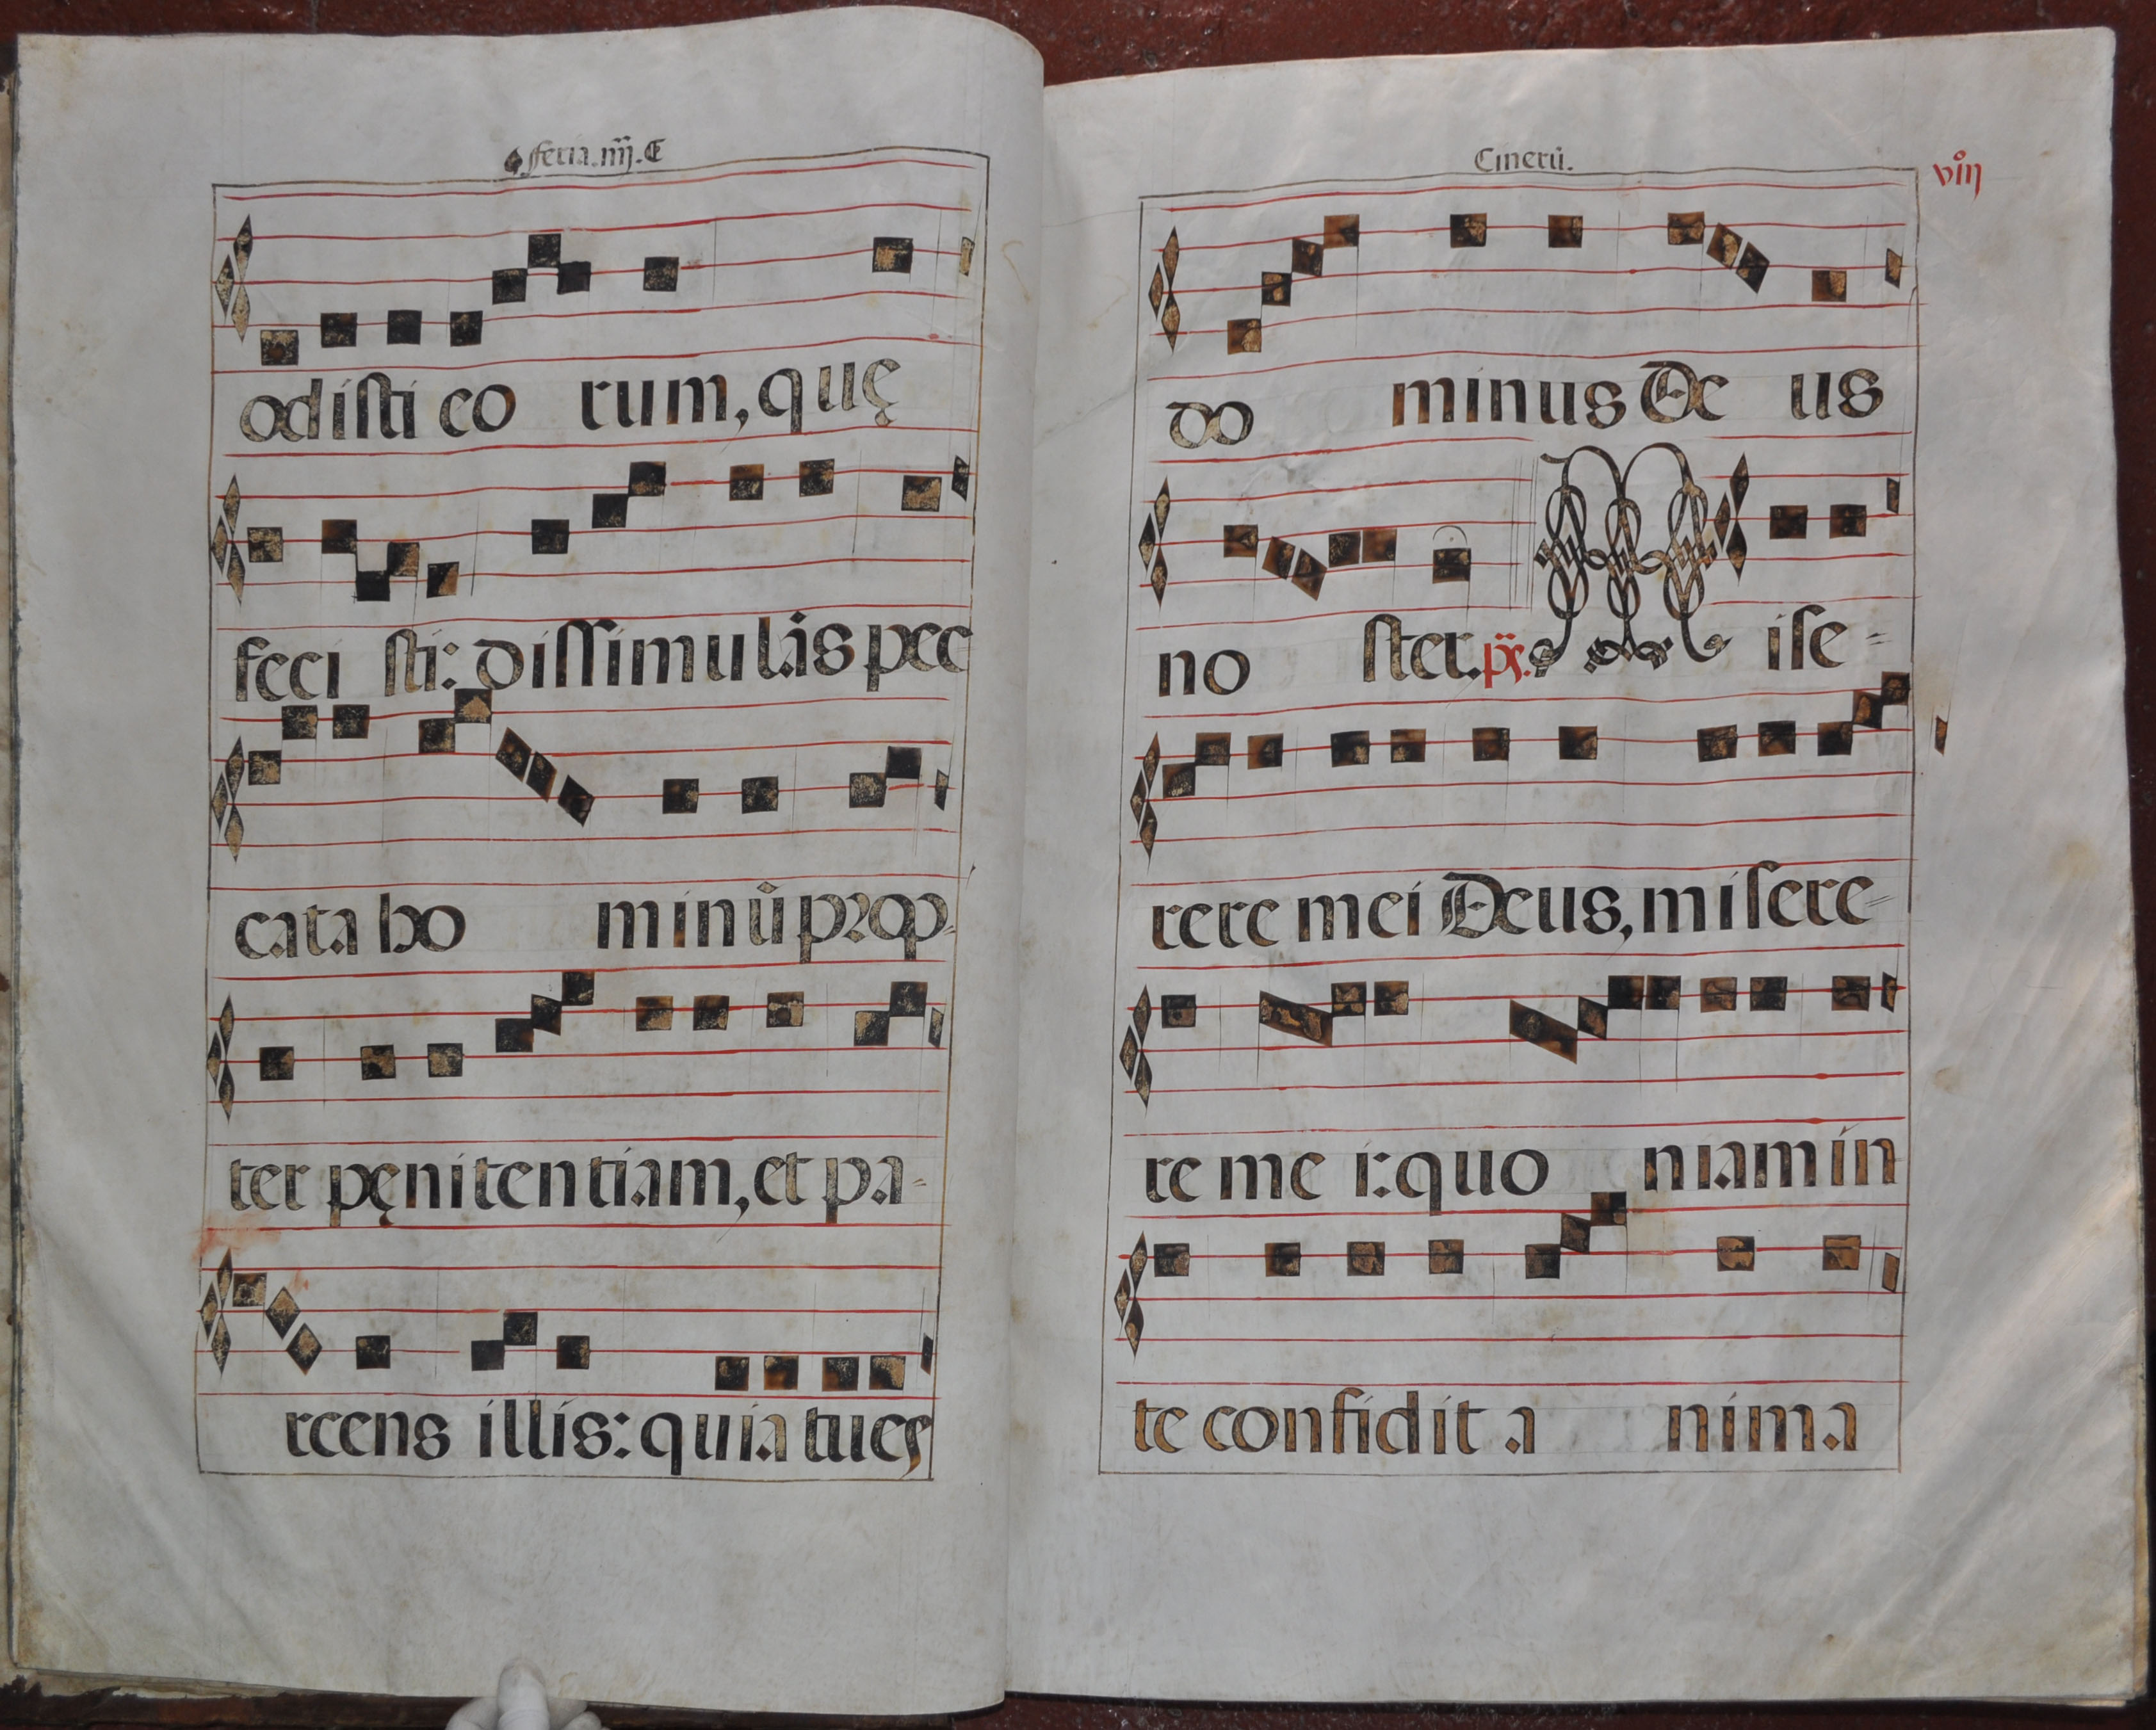 feria.iiij.C
odisti eo rum, quę
feci sti: dissimulás pec
cata ho minū prop-
ter pęnitentiam, et pa-
rcens illis: quia tu es
Cinerū.
viij
do minus De us
no ster. ps. Mise-
rere mei Deus, misere-
re me i: quo niam in
te confidit a nima